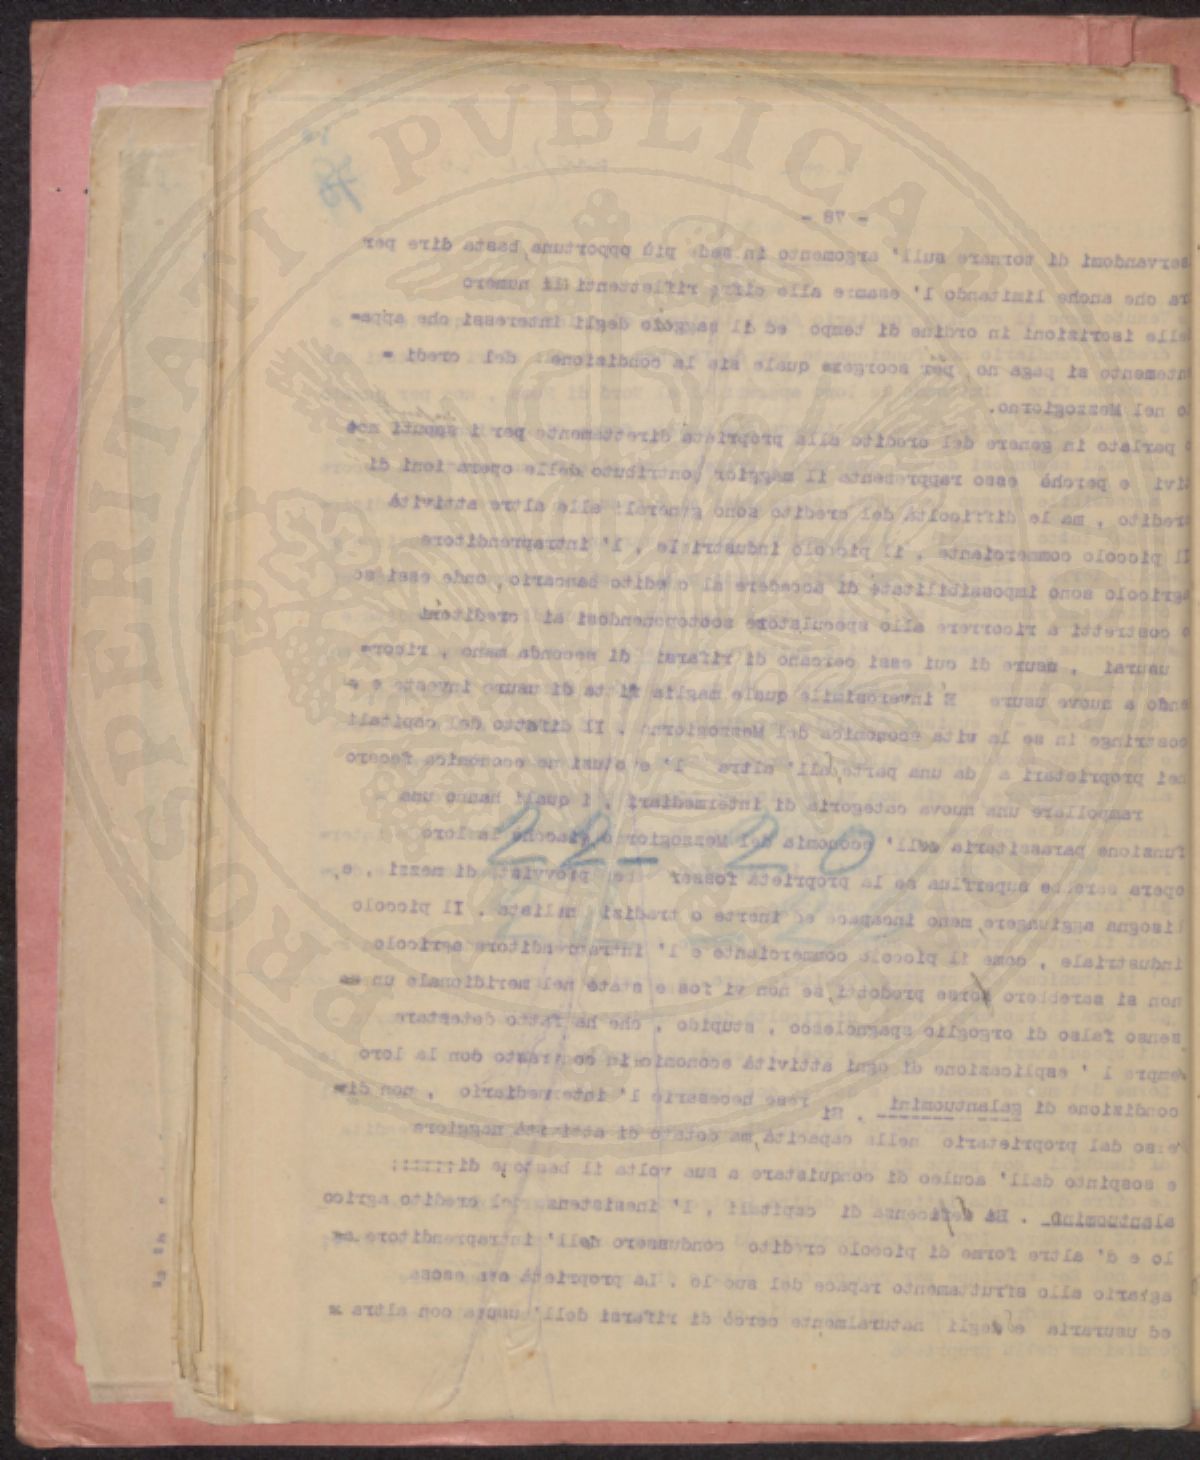 - 78 -
servandomi di tornare sull' argomento in sede più opportuna, basta dire per
ra che anche limitando l' esame alle cifre riflettenti il numero
elle iscrizioni in ordine di tempo ed il saggio degli interessi che appa=
ntemente si paga no, per scorgere quale sia la condizione del credi =
o nel Mezzogiorno.
parlato in genere del credito alla proprietà direttamente per i saputi mot
ivi e perchè esso rappresenta il maggior contributo delle operazioni di
credito , ma le difficoltà del credito sono generali alle altre attività
Il piccolo commerciante , il piccolo industriale , l' intraprenditore
agricolo sono impossibilitate di accedere al credito bancario, onde essi so
o costretti a ricorrere allo speculatore sottoponendosi ai creditori
usurai , usure di cui essi cercano di rifarsi di seconda mano , ricor=
endo a nuove usure E inverosimile quale maglia fitta di usure investe e
costringe in se la vita economica del Mezzogiorno . Il difetto del capitali
nei proprietari a da una parte, dall' altra l' e olusi ne economica fecero
rampollare una nuova categoria di intermediari , i quali hanno una
funzione parassitaria dell' economia del Mezzogiorno giacche la loro
22 - 20
opera sarebbe superflua se la proprietà fosser provvist di mezzi , e,
bisogna aggiungere, meno incapace ed inerte o tradizi nalista . Il piccolo
industriale , come il piccolo commerciante e l' intraprenditore agricolo
non si sarebbero forse prodotti, se non vi fos e stato nel meridionale un
senso falso di orgoglio spagnolesco , stupido , che ha fatto detestare
empre l ' esplicazione di ogni attività economic in contrasto don la loro
condizione di galantuomini . Si rese necessario l' intermediario , non di=
verso dal proprietario nella capacità, ma dotato di attività maggiore
e sospinto dall' aculeo di conquistare a sua volta il bastone di
alantuomino . La deficenza di capitali , l' inesistenza del credito agrico
lo e d' altre forme di piccolo credito condussero dell' intraprenditore
agrario allo sfruttamento rapace del suo lo . La proprietà era esosa
ed usuraria e egli naturalmente cercò di rifarsi dell' usura con altra